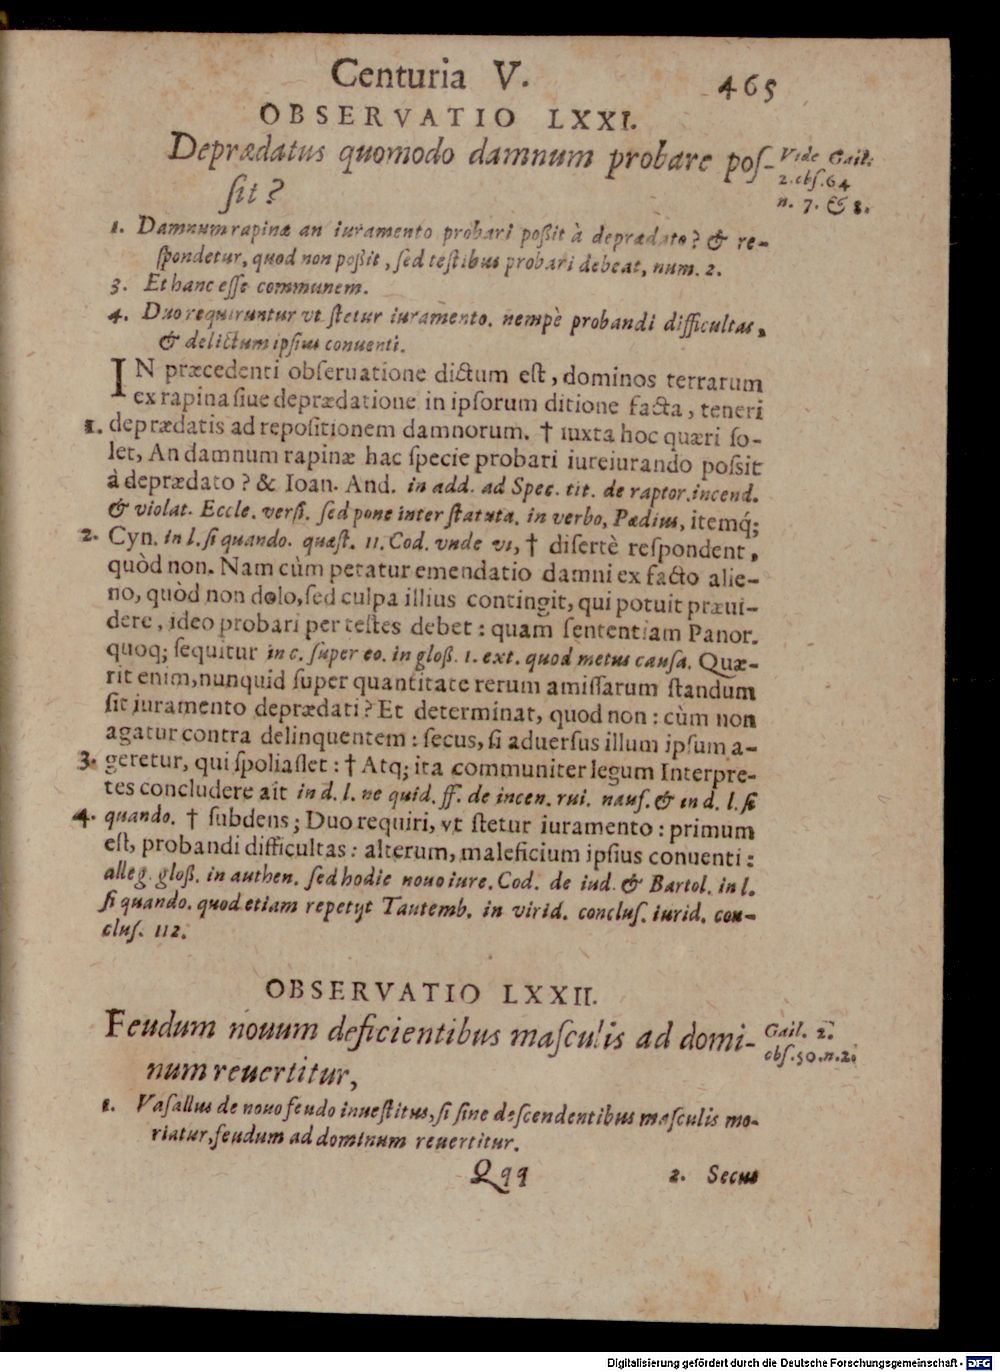 Centuria V. 465
OBSERVATIO LXXI.
Deprædatus quomodo damnum probare pos-
sit?
Vide Gail:
2. obs. 64
n. 7. & 8.
1. Damnum rapinæ an iuramento probari poßit à deprædato? & re-
spondetur, quod non poßit, sed testibus probari debeat, num. 2.
3. Et hanc esse communem.
4. Duo requiruntur vt stetur iuramento. nempè probandi difficultas,
& delictum ipsius conuenti.
IN præcedenti obseruatione dictum est, dominos terrarum
ex rapina siue deprædatione in ipsorum ditione facta, teneri
1. deprædatis ad repositionem damnorum. † iuxta hoc quæri so-
let, An damnum rapinæ hac specie probari iureiurando possit
à deprædato? & Ioan. And. in add. ad Spec. tit. de raptor. incend.
& violat. Eccle. versi. sed pone inter statuta. in verbo, Pædius, itemq́;
2. Cyn. in l. si quando. quæst. 11. Cod. vnde vi, † disertè respondent,
quòd non. Nam cùm petatur emendatio damni ex facto alie-
no, quòd non dolo, sed culpa illius contingit, qui potuit præui-
dere, ideo probari per testes debet: quam sententiam Panor.
quoq; sequitur in c. super eo. in gloß. 1. ext. quod metus causa. Quæ-
rit enim, nunquid super quantitate rerum amissarum standum
sit iuramento deprædati? Et determinat, quod non: cùm non
agatur contra delinquentem: secus, si aduersus illum ipsum a-
3. geretur, qui spoliasset: † Atq; ita communiter legum Interpre-
tes concludere ait in d. l. ne quid. ff. de incen. rui. nauf. & in d. l. si
4. quando. † subdens; Duo requiri, vt stetur iuramento: primum
est, probandi difficultas: alterum, maleficium ipsius conuenti:
alleg. gloß. in authen. sed hodie nouo iure. Cod. de iud. & Bartol. in l.
si quando. quod etiam repetijt Tautemb. in virid. conclus. iurid. con-
clus. 112.
OBSERVATIO LXXII.
Feudum nouum deficientibus masculis ad domi-
num reuertitur,
Gail. 2.
obs. 50. n. 2.
1. Vasallus de nouo feudo inuestitus, si sine descendentibus masculis mo-
riatur, feudum ad dominum reuertitur.
Qqq 2. Secus
Digitalisierung gefördert durch die Deutsche Forschungsgemeinschaft - DFG